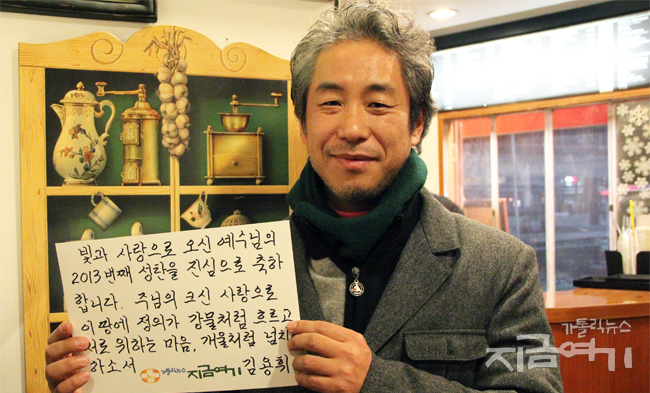 빛과 사랑으로 오신 예수님의
2013번째 성탄을 진심으로 축하
합니다. 주님의 크신 사랑으로
이 땅에 정의가 강물처럼 흐르고
서로 위하는 마음, 개울처럼 넘치
하소서 가톨릭뉴스 지금여기 김용휘
가톨릭뉴스
지금여기